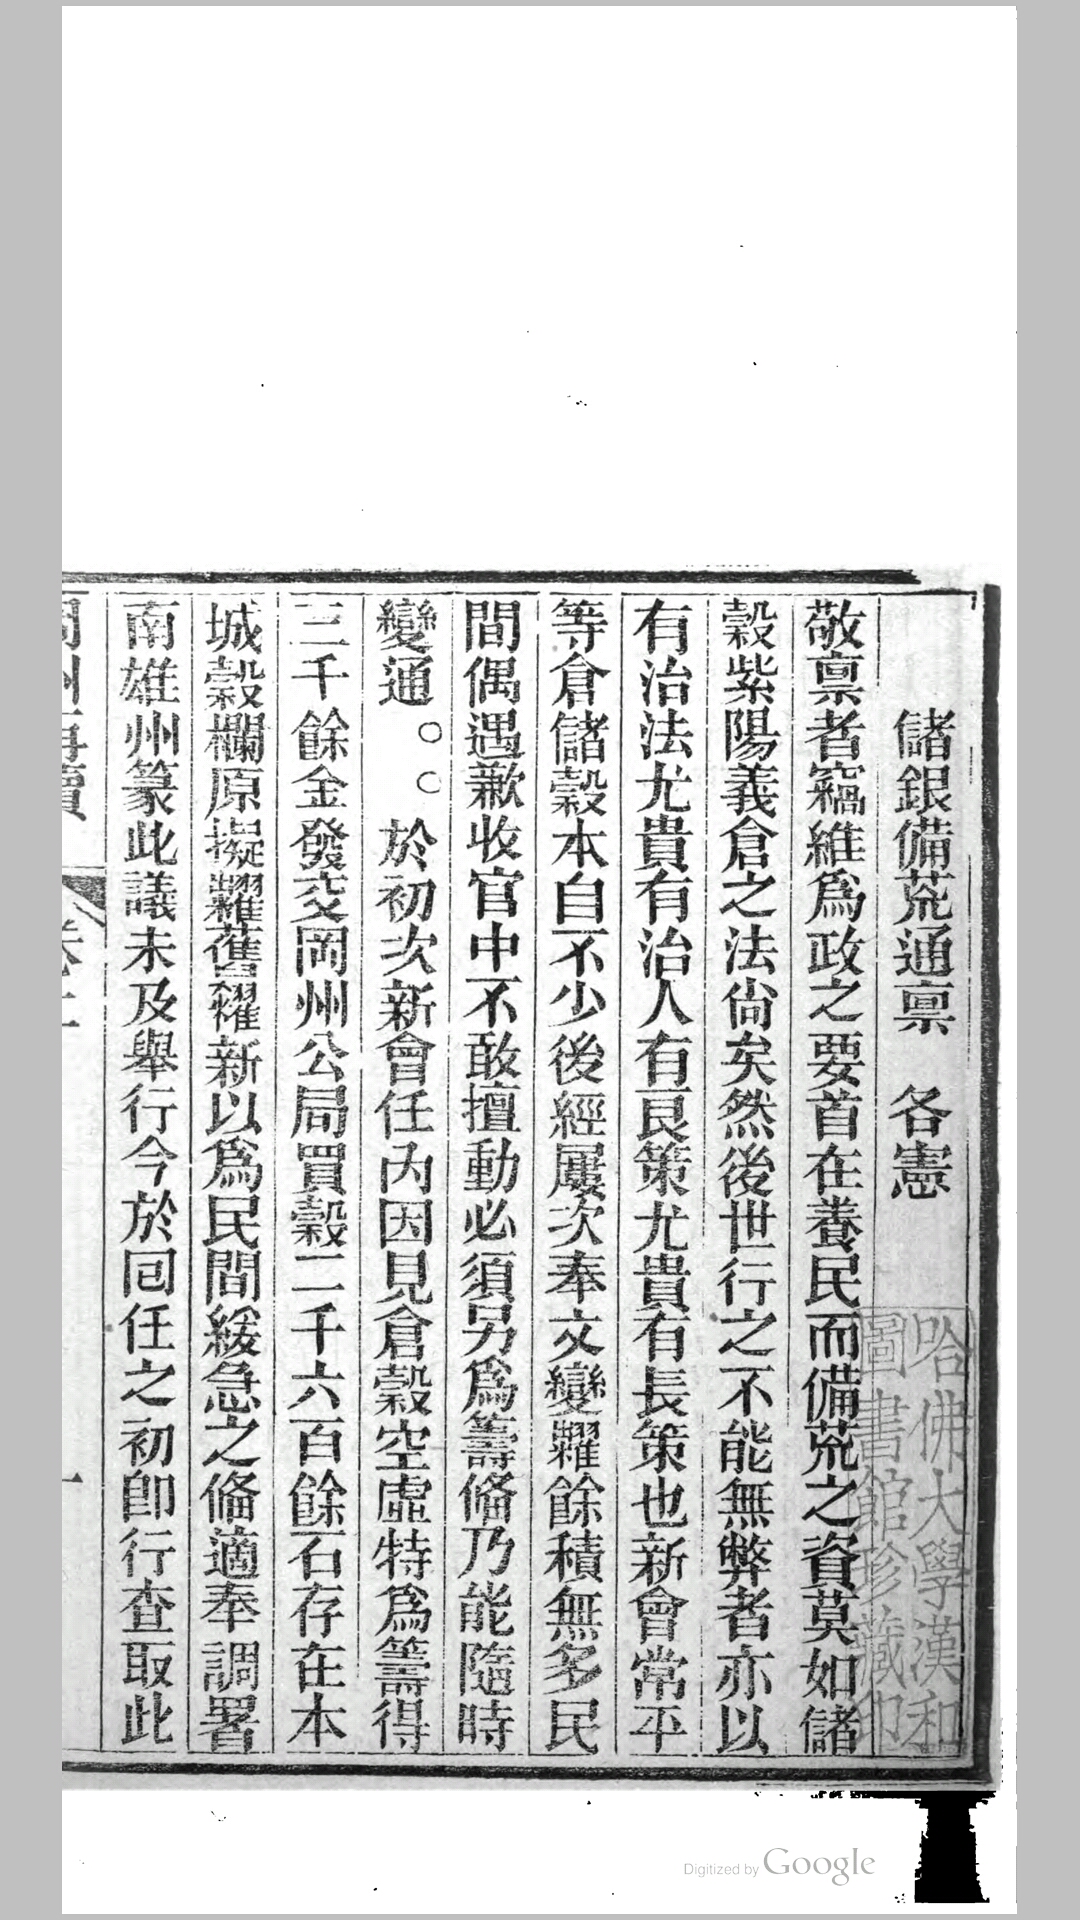 儲銀備荒通禀　各憲
敬禀者竊維爲政之要首在養民而備荒之資莫如儲
穀紫陽義倉之法尙矣然後世行之不能無弊者亦以
有治法尤貴有治人有良策尤貴有長策也新會常平
等倉儲穀本自不少後經屢次奉文變糶餘積無多民
間偶遇歉收官中不敢擅動必須另爲籌備乃能隨時
變通○○於初次新會任內因見倉穀空虛特爲籌得
三千餘金發交岡州公局買穀二千六百餘石存在本
城穀欄原擬糶舊糴新以爲民間緩急之備適奉調署
南雄州篆此議未及舉行今於囘任之初卽行查取此
岡州再牘　卷二　一
哈佛大學漢和
圖書館珍藏印
Digitized by Google